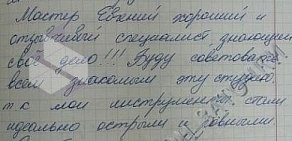 Мастер Евгений хороший и
отзывчивый специалист знающий
своё дело!!! Буду советовать
всем знакомым эту студию
т.к мои инструменты стали
идеально острыми и ровными